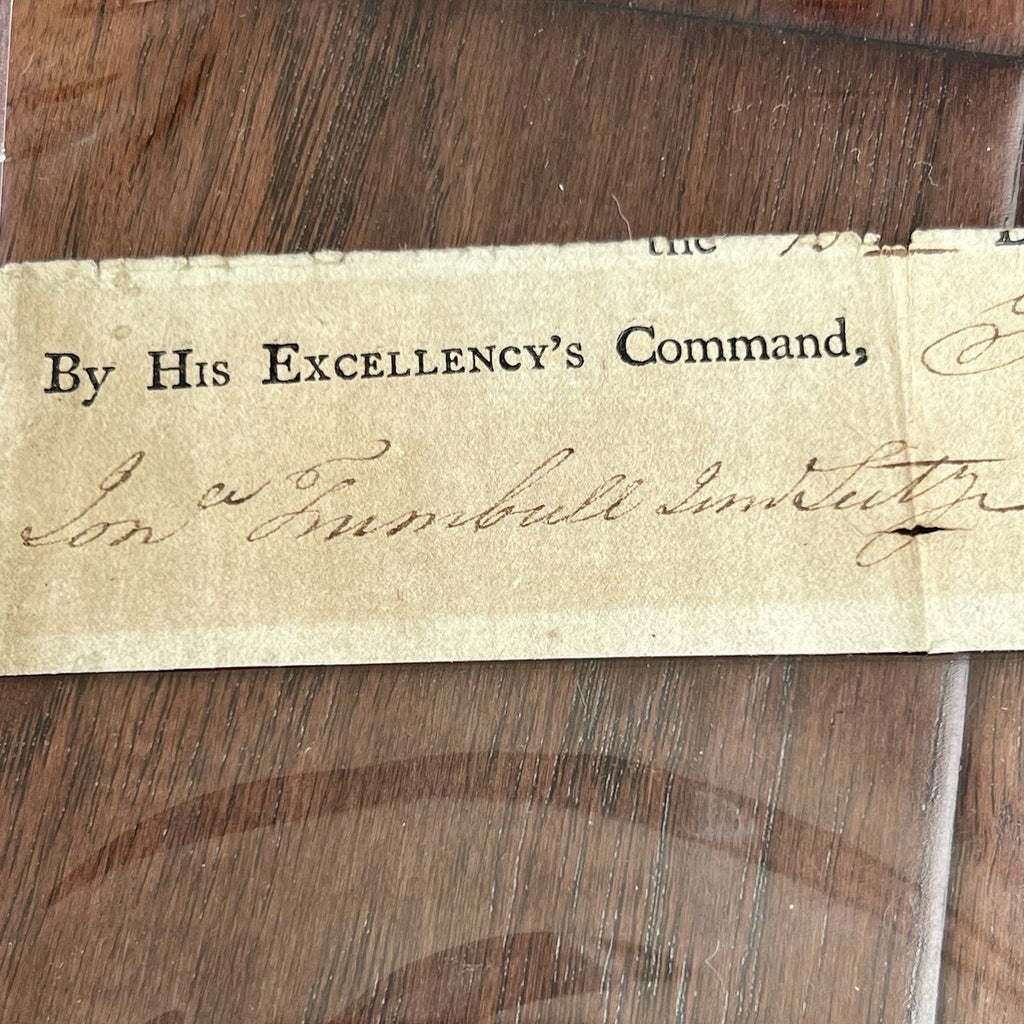 the 15
By His Excellency's Command,
Jonª Trumbull Junr Secty